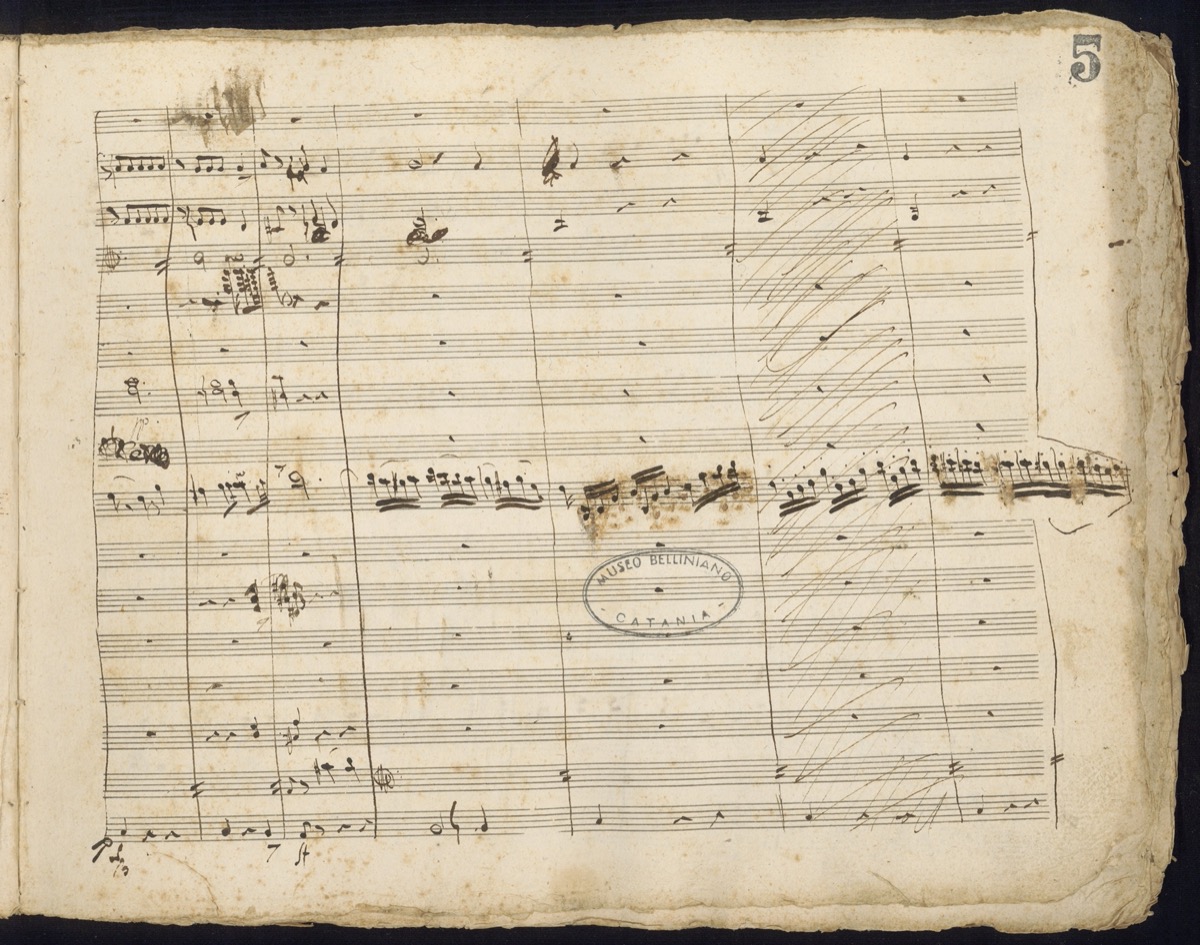 5
pp
MUSEO BELLINIANO
- CATANIA -